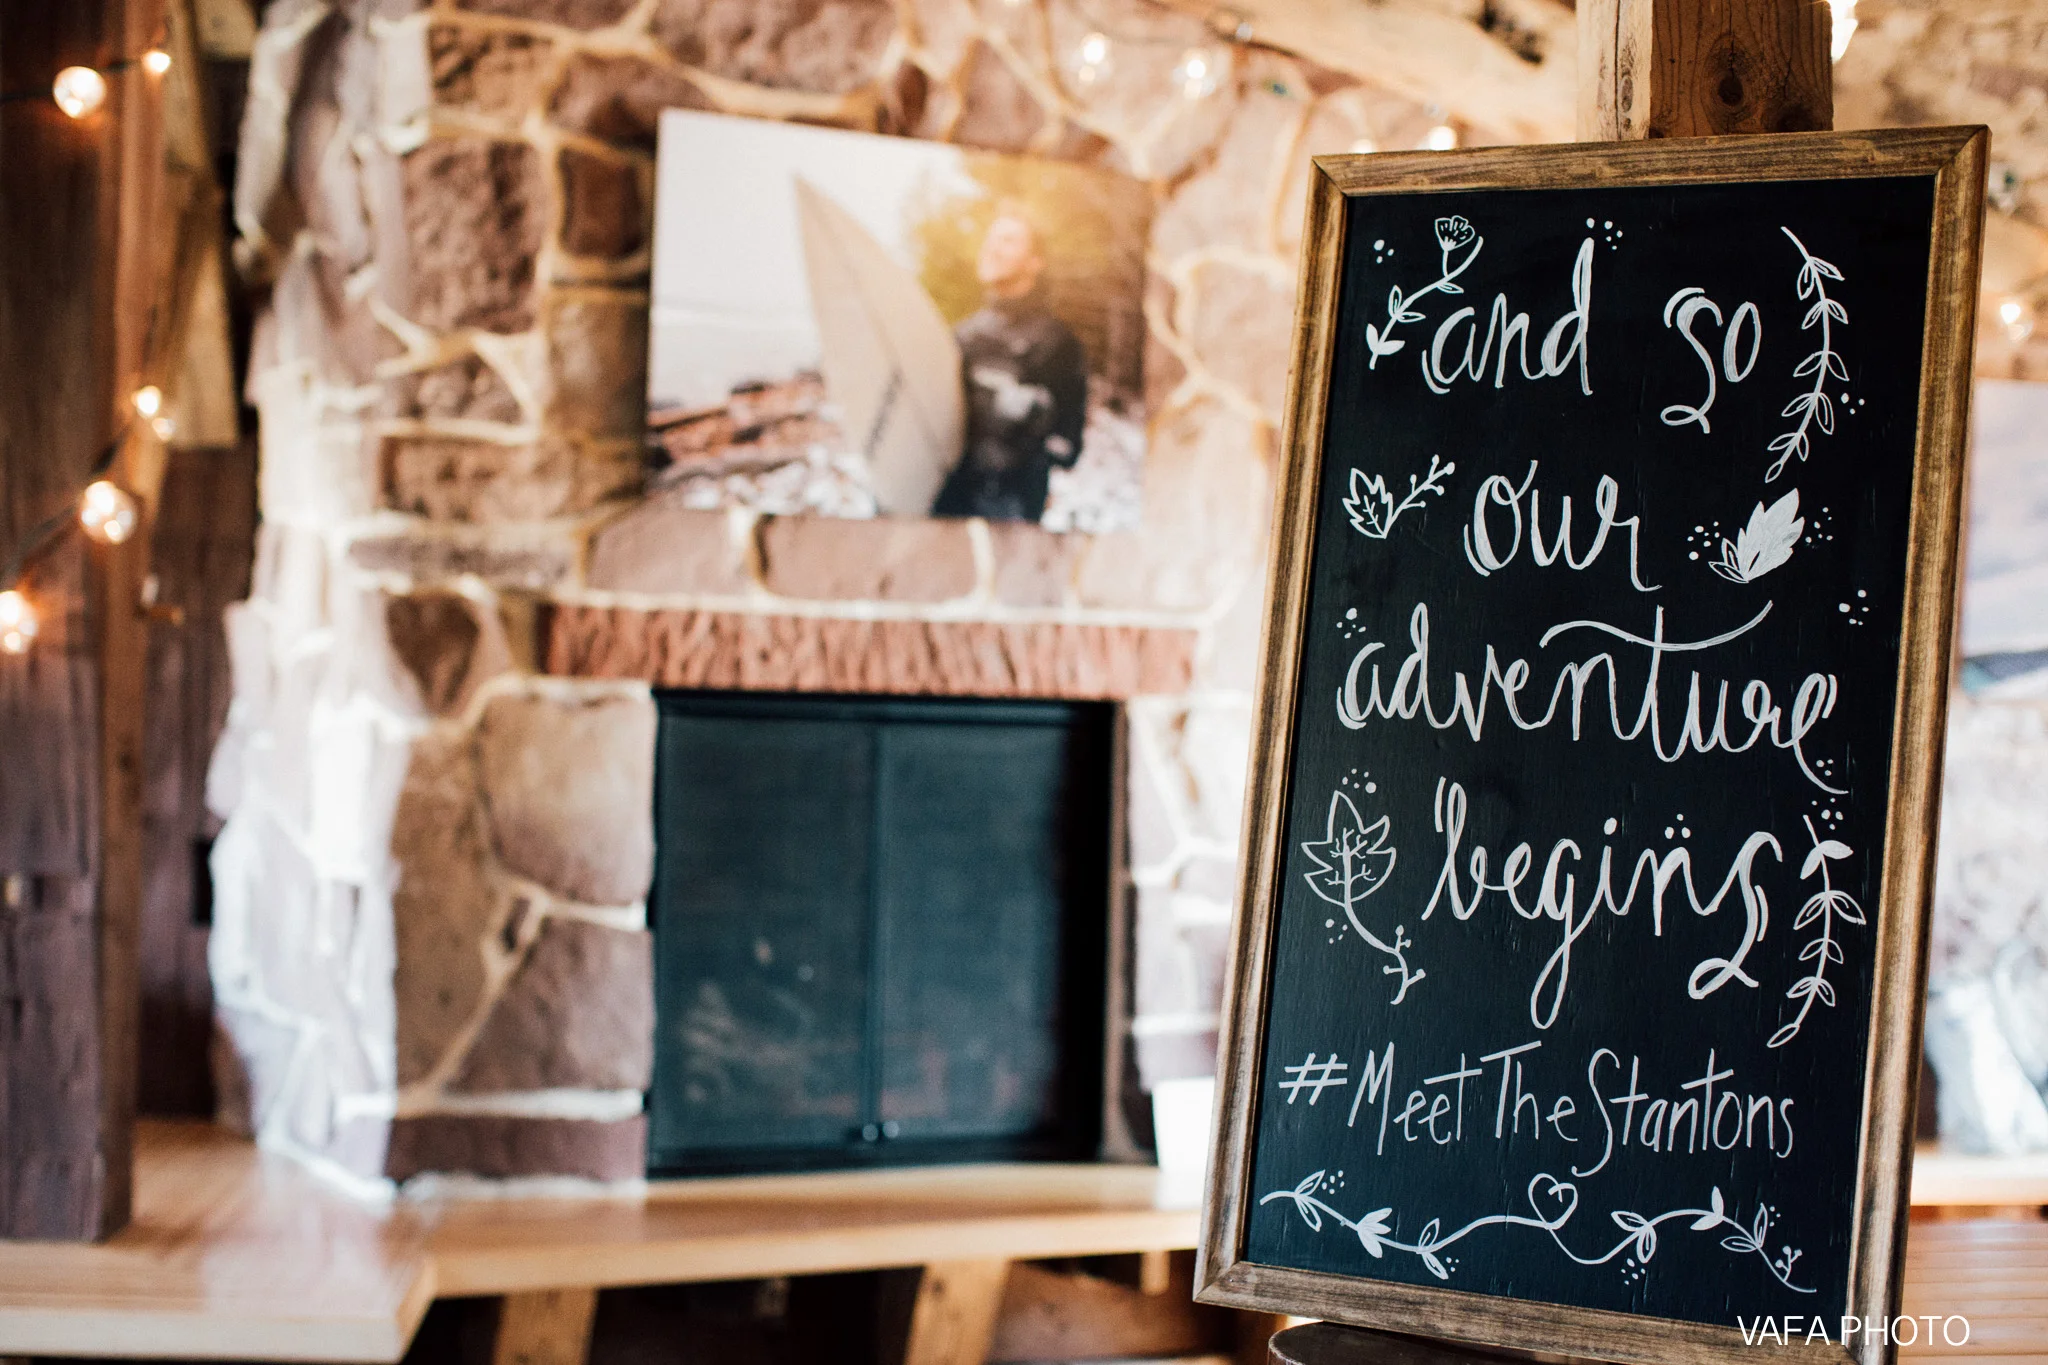 and so
our
adventure
begins
#MeetTheStantons
VAFA PHOTO